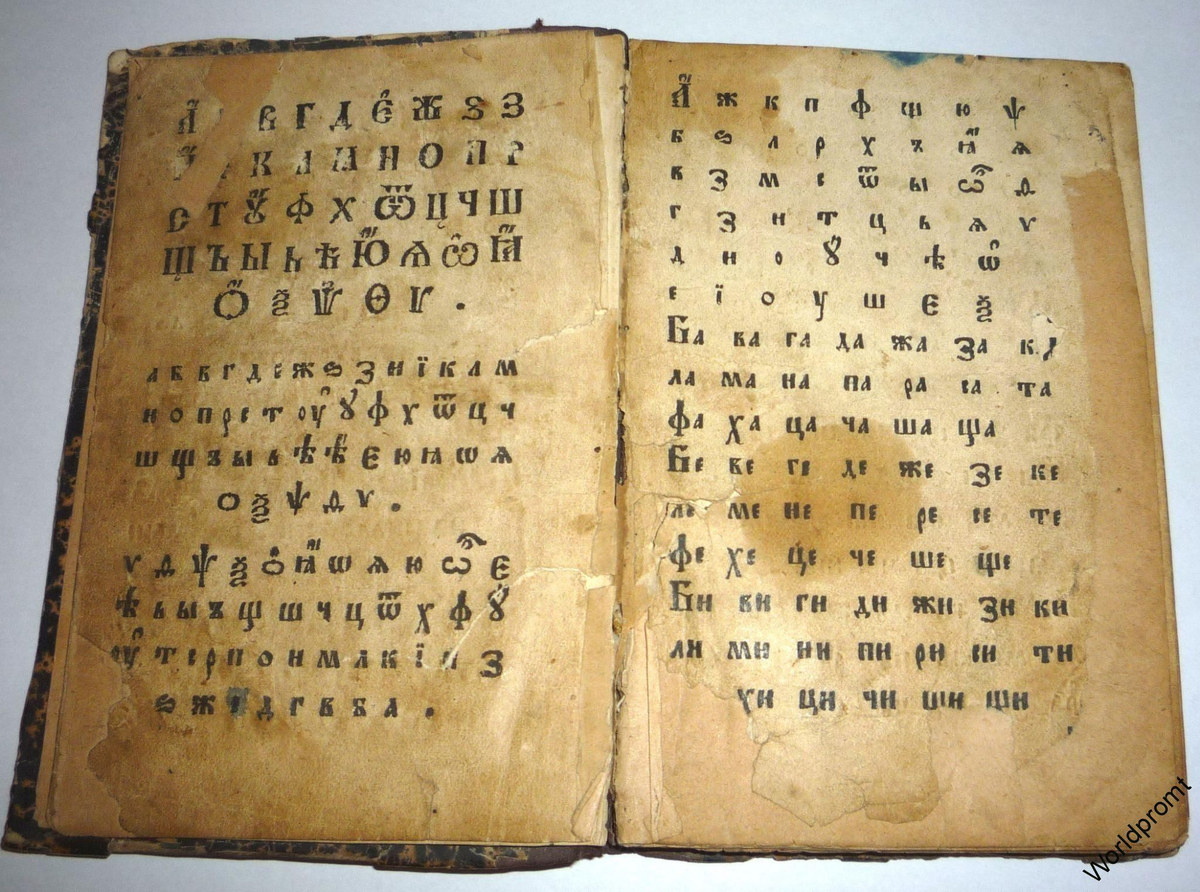 А В Г Д Є Ж Ѕ З
К Л М Н О П Р
С Т Ꙋ Ф Х Ѿ Ц Ч Ш
Щ Ъ Ы Ь Ѣ Ю Ѧ Ѡ Ꙗ
О Ѯ Ѱ Ѳ Ѵ .
а б в г д е ж ѕ з и ї к л м
н о п р с т оу ꙋ ф х ѿ ц ч
ш щ ъ ы ь ѣ ѣ є ю ꙗ ѡ ѧ
о ѯ ѱ ѳ ѵ .
ѵ ѳ ѱ ѯ о ꙗ ѡ ѧ ю ѽ є
ѣ ь ы ъ щ ш ч ц ѿ х ф ꙋ
оу т с р п о н м л к ї и з
ѕ ж д г в б а .
А ж к п ф ш ю ѱ
б ѕ л р х ъ ꙗ ѧ
в З м с ѿ ы ѽ ѳ
г З н т ц ь ѧ ѵ
д и о ꙋ ч ѣ ѡ
е ї о у ш є ѯ
Ба ва га да жа за ка
ла ма на па ра са та
фа ха ца ча ша ща
Бе ве ге де же зе ке
ле ме не пе ре се те
фе хе це че ше ще
Би ви ги ди жи зи ки
ли ми ни пи ри си ти
хи ци чи ши щи
Worldpromt